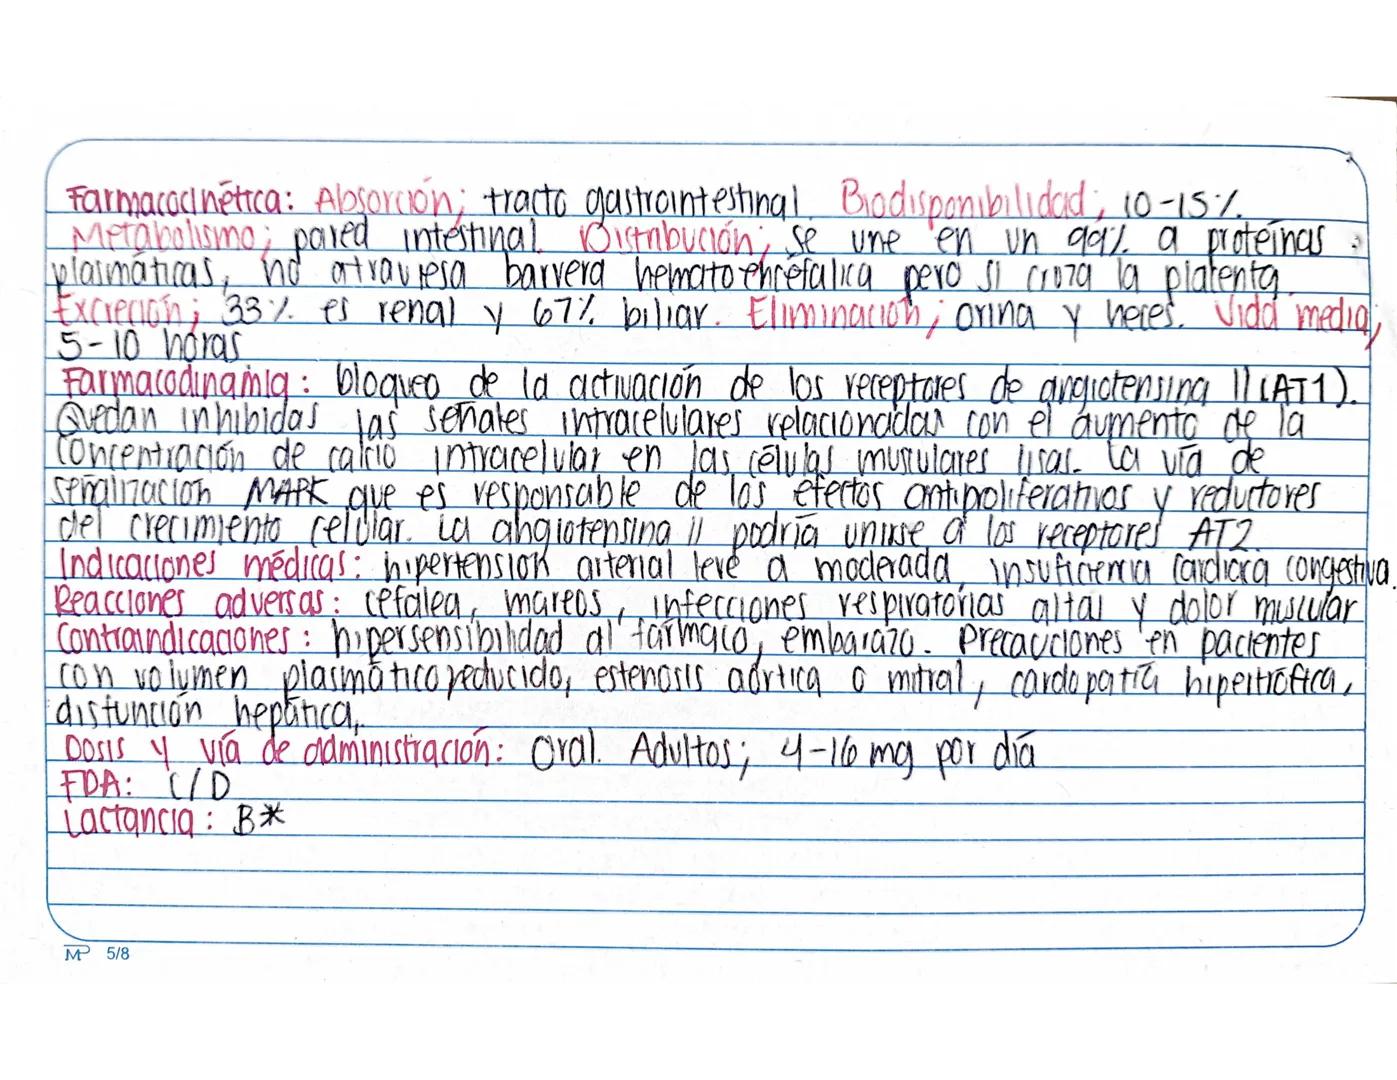 Farmacocinética: Absorción; tracto gastrointestinal. Biodisponibilidad; 10-15%.
Metabolismo; pared intestinal. Distribución; se une en un 99% a proteínas
plasmáticas, no atraviesa barrera hematoencefálica pero si cruza la placenta.
Excreción; 33% es renal y 67% biliar. Eliminación; orina y heces. Vida media;
5-10 horas
Farmacodinamia: bloqueo de la activación de los receptores de angiotensina II (AT1).
Quedan inhibidas las señales intracelulares relacionadas con el aumento de la
concentración de calcio intracelular en las células musculares lisas. La vía de
señalización MAPK que es responsable de los efectos antipoliferativos y reductores
del crecimiento celular. La angiotensina II podría unirse a los receptores AT2.
Indicaciones médicas: hipertensión arterial leve a moderada, insuficiencia cardiaca congestiva.
Reacciones adversas: cefalea, mareos, infecciones respiratorias altas y dolor muscular
Contraindicaciones: hipersensibilidad al fármaco, embarazo. Precauciones en pacientes
con volumen plasmático reducido, estenosis aórtica o mitral, cardopatía hipertrófica,
disfunción hepática,
Dosis y vía de administración: Oral. Adultos; 4-16 mg por día
FDA: C/D
Lactancia: B*
MP 5/8